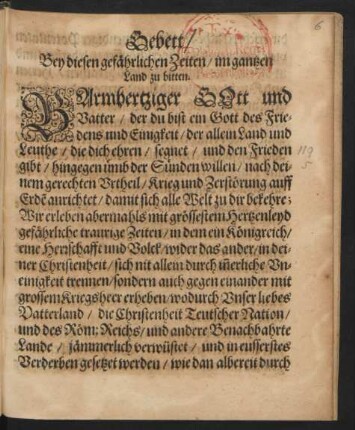 6
Gebett/
Bey diesen gefährlichen Zeiten/ im gantzen
Land zu bitten.
BArmhertziger GOtt und
Vatter/ der du bist ein Gott des Frie-
dens und Einigkeit/ der allein Land und
Leuthe/ die dich ehren/ segnet/ und den Frieden
gibt/ hingegen umb der Sünden willen/ nach dei-
nem gerechten Urtheil/ Krieg und Zerstörung auff
Erd anrichtet/ damit sich alle Welt zu dir bekehre;
Wir erleben abermahls mit grössestem Hertzenleyd
gefährliche traurige Zeiten/ in dem ein Königreich/
eine Herrschafft und Volck/ wider das ander/ in dei-
ner Christienheit/ sich nit allein durch iñerliche Un-
einigkeit trennen/ sondern auch gegen einander mit
grossem Kriegsheer erheben/ wodurch Unser liebes
Vatterland/ die Christenheit Teutscher Nation/
und des Röm: Reichs/ und andere Benachbahrte
Lande/ jämmerlich verwüstet/ und in eusserstes
Verderben gesetzet werden/ wie dan albereit durch
119
5